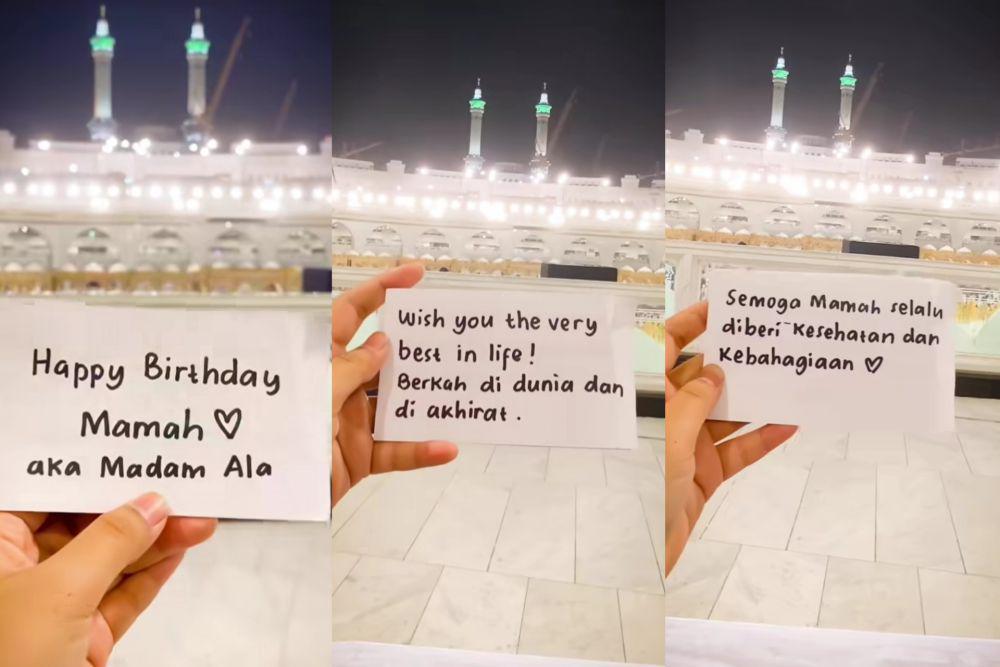 Happy Birthday
Mamah ♡
aka Madam Ala
Wish you the very
best in life!
Berkah di dunia dan
di akhirat.
Semoga Mamah selalu
diberi kesehatan dan
Kebahagiaan ♡